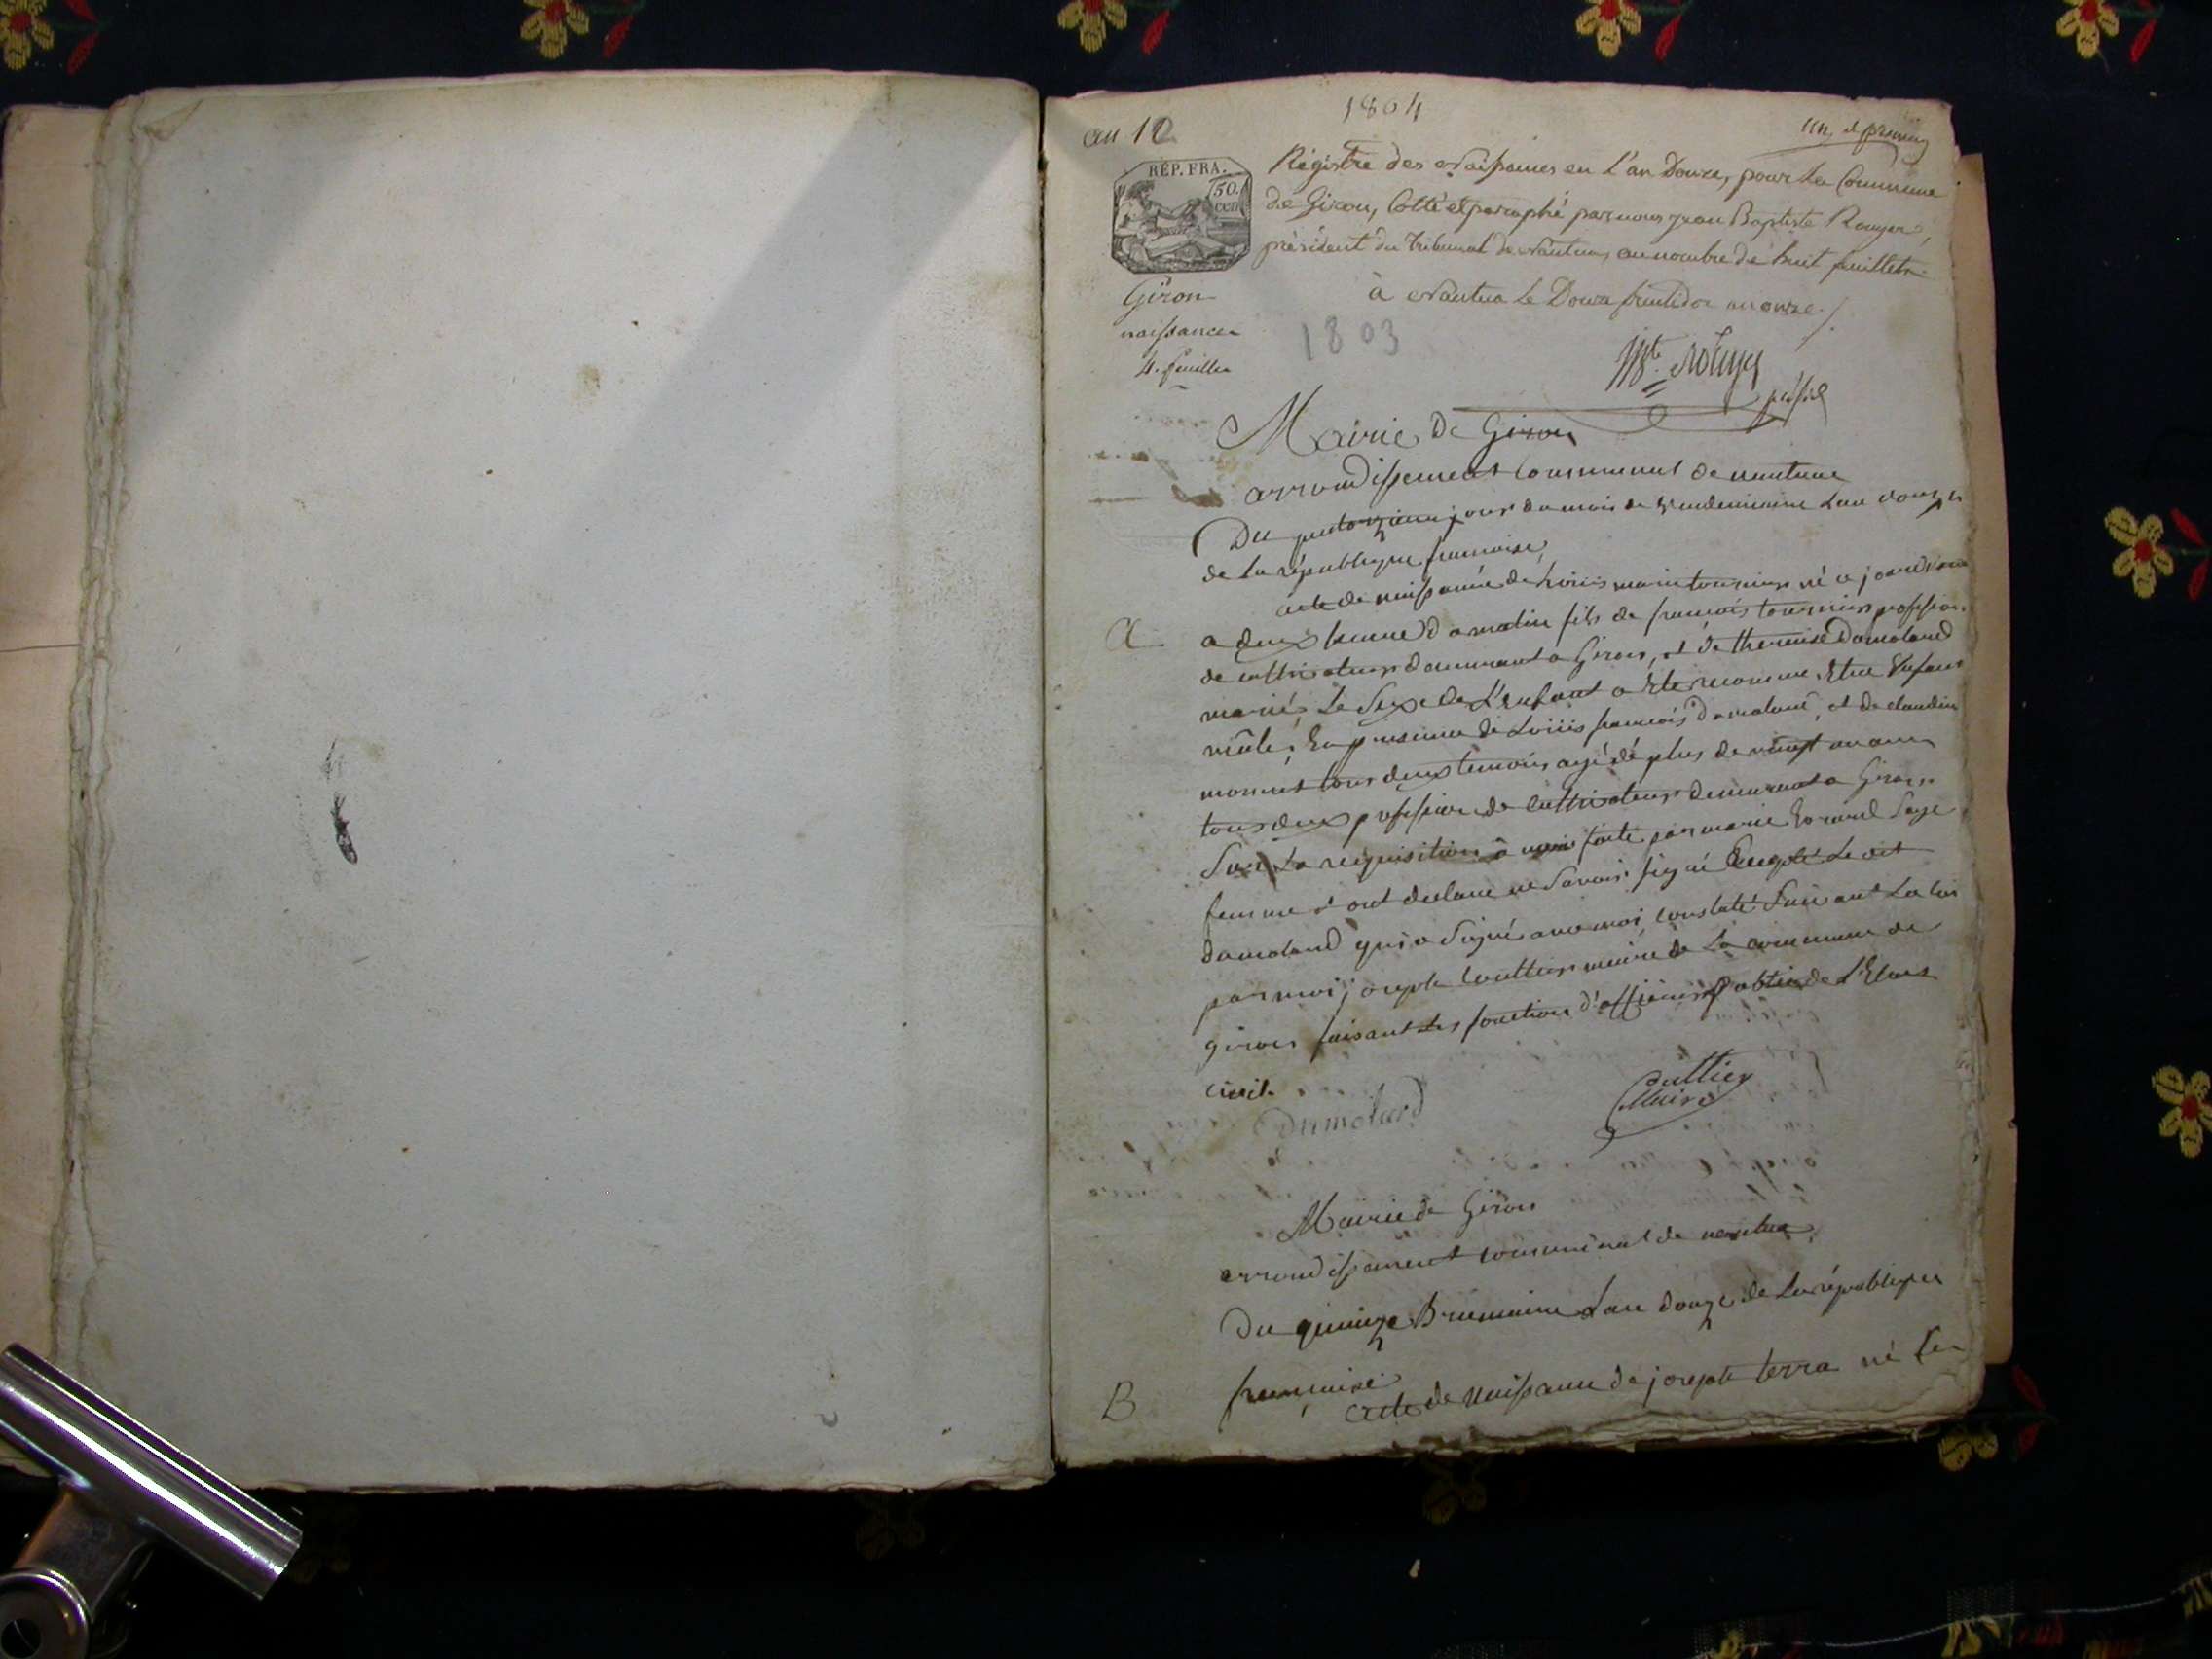 1804
an 12
un et premier
RÉP. FRA.
50.
cen
Régistre des Naissances en L'an Douze, pour La Commune
de Giron, Cotté et paraphé par nous jean Baptiste Rouyer,
président du Tribunal de Nantua, au nombre de huit feuillets
à Nantua Le Douze fructidor an onze ./.
Giron
naissances
4. feuilles
1803
Mairie de Giron
arrondissement Communal de nantua
Du quatorzieme jour du mois de Vendemiaire L'an douze
de La république francaise,
acte de naissance de Loüis marie tournier né ce jourd'hui
a
a deux heures du matin fils de francois tournier profession
de cultivateur demeurant a Giron, et de theraise Damoland
mariés, Le Sexe de L'enfant a été reconnue Etre Enfant
mâle, En presence de Loüis francois Damoland, et de claudin
tous deux temoins agé de plus de vingt un ans
tous deux profession de Cultivateur demeurant a Giron.
Sur La requisition à nous faite par marie Sage
femme et ont declaré ne Savoir signé Excepté Le dit
Damoland qui a Signé avec moi, constaté Suivant La loi
par moi joseph Coultier maire de La commune de
giron faisant Les fonction d'officier Publie de L'Etat
civil.
Dumolard
Coultier
Maire
Mairie de Giron
arrondissement communal de nantua
Du quinze Brumaire L'an douze de La république
francaise
B
acte de Naissance de joseph terra né Le